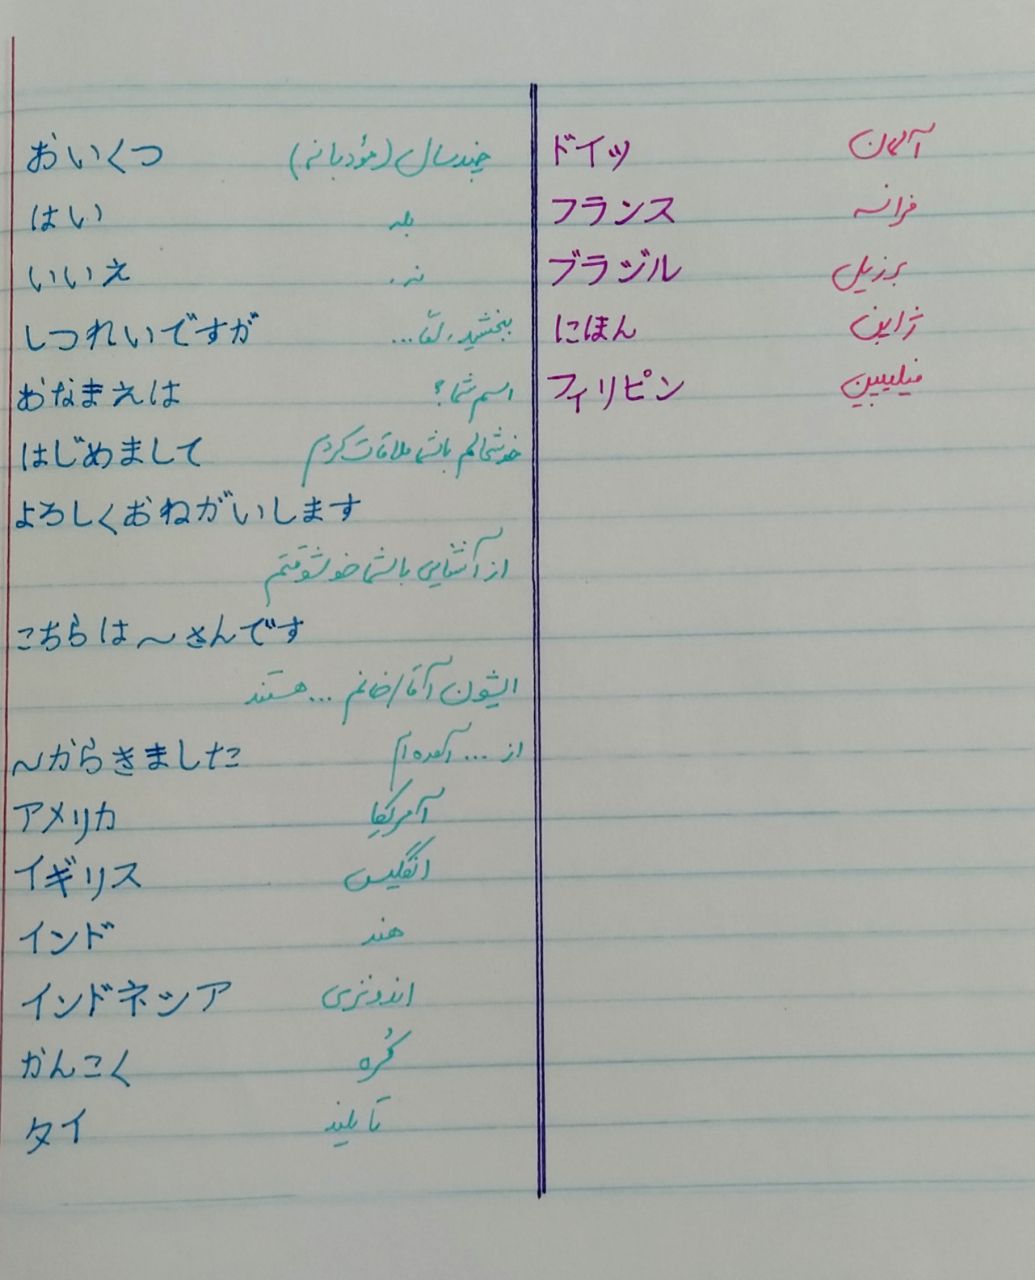 おいくつ چند سال (مؤدبانه)
はい بله
いいえ نه.
しつれいですが ببخشید، امّا...
おなまえは اسم شما؟
はじめまして خوشحالم باشما ملاقات کردم
よろしくおねがいします
از آشنایی باشما خوشوقتم
こちらは〜さんです
ایشون آقا/خانم ... هستند
〜からきました از ... آمده‌ام
アメリカ آمریکا
イギリス انگلیس
インド هند
インドネシア اندونزی
かんこく کُره
タイ تایلند
ドイツ آلمان
フランス فرانسه
ブラジル برزیل
にほん ژاپن
フィリピン فیلیپین